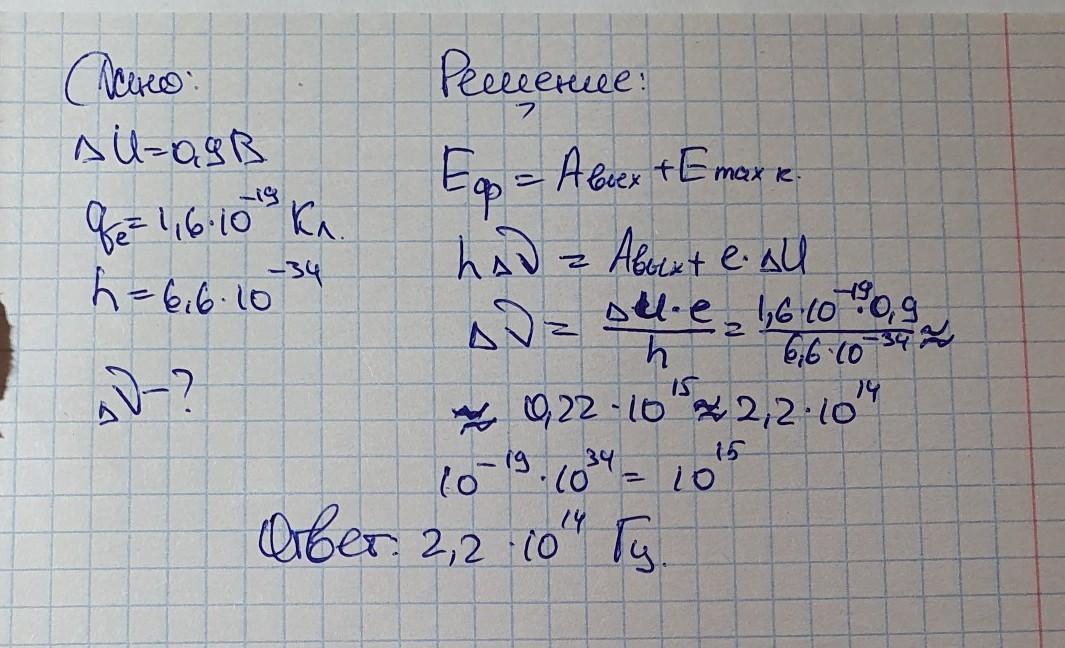 Дано:
ΔU=0,9В
qe=1,6·10⁻¹⁹ Кл.
h=6,6·10⁻³⁴
Δν-?
Решение:
Eф = Aвых + E max к.
hΔν = Aвых + e·ΔU
Δν = ΔU·e/h = 1,6·10⁻¹⁹·0,9/6,6·10⁻³⁴ ≈
≈ 0,22·10¹⁵ ≈ 2,2·10¹⁴
10⁻¹⁹·10³⁴ = 10¹⁵
Ответ: 2,2·10¹⁴ Гц.